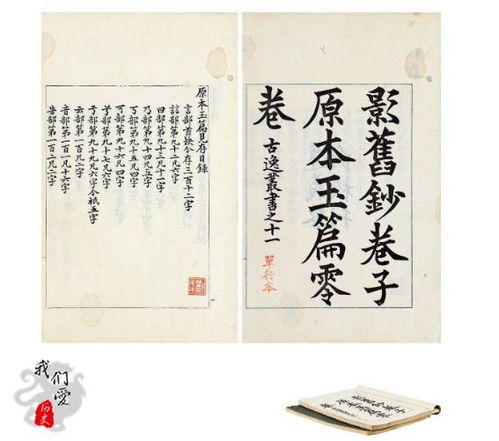 影舊鈔卷子
原本玉篇零
卷 古逸叢書之十一 單行本
原本玉篇見存目錄
言部首缺今存三百十二字
誩部第九十二凡六字
曰部第九十三凡十一字
乃部第九十四凡五字
可部第九十六凡四字
兮部第九十七凡六字
亏部第九十九凡六字今祇五字
云部第一百凡二字
音部第一百一凡十六字
告部第一百二凡二字
我们爱
历史